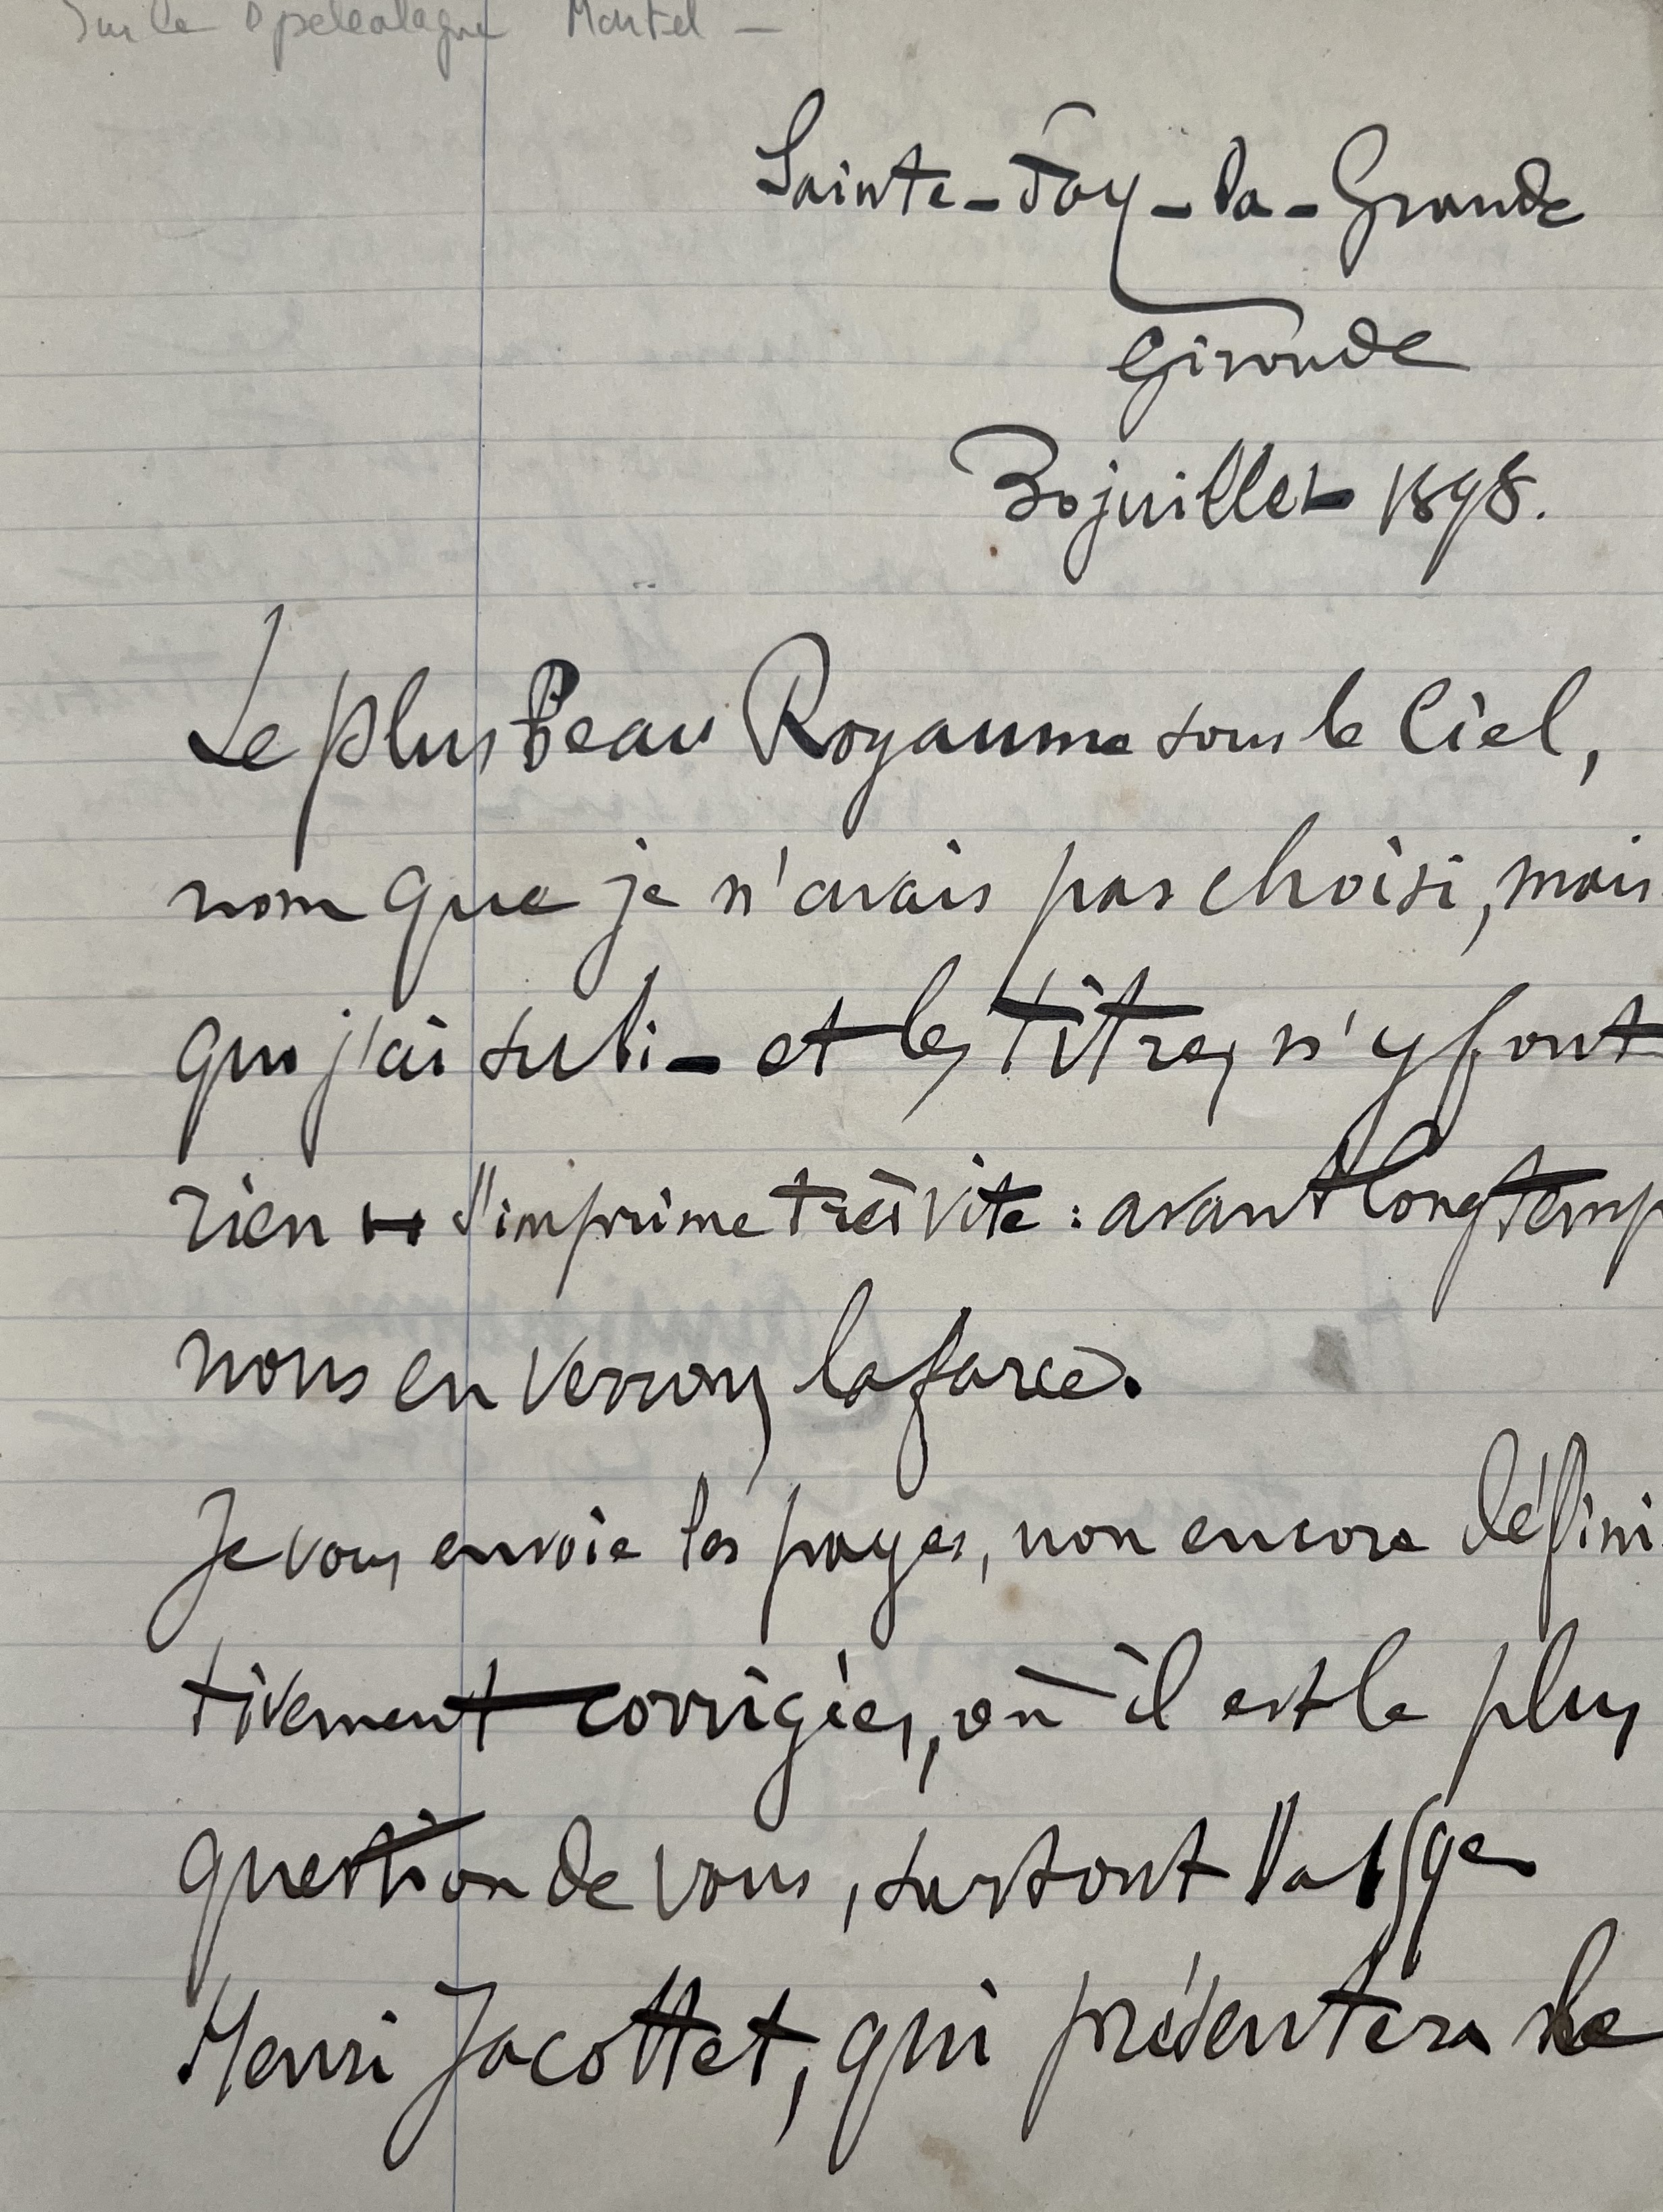 Sur le spéléologue Martel -
Sainte-Foy-la-Grande
Gironde
30 juillet 1898.
Le plus Beau Royaume sous le Ciel,
nom que je n'avais pas choisi, mais
que j'ai subi - et les titres n'y font
rien - s'imprime très vite : avant longtemps
nous en verrons la farce.
Je vous envoie les pages, non encore défini-
tivement corrigées, où il est le plus
question de vous, surtout la 159e
Henri Jacottet, qui présentera le